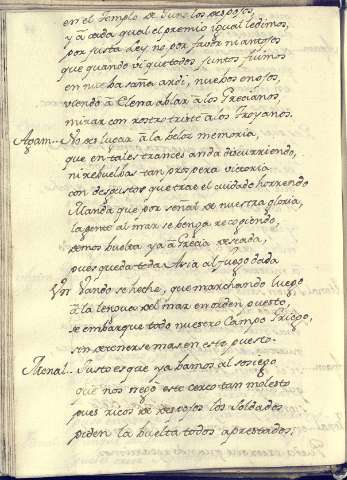 en el Templo de Juno los despojos,
y a cada qual el premio igual le dimos,
por justa Ley no por favor ni antojos
que quando vi que todos juntos fuimos
en nueba saña ardi, nuebos enojos,
viendo a Elena ablar a los Grecianos,
mirar con rostro triste a los Troyanos.
Agam.. No des lugar a la beloz memoria,
que en tales trances anda discurriendo,
ni rebuelbas tan prospera victoria
con disgustos que trae el cuidado horrendo
Manda que por señal de nuestra gloria,
la gente al mar se benga recogiendo,
demos buelta ya a Grecia deseada,
pues queda toda Asia al fuego dada
Un Vando se heche, que marchando luego
a la lengua del mar en orden puesto,
se embarque todo nuestro Campo Griego,
sin detenerse mas en este puesto.
Monal.. Justo es que ya bamos al sosiego
que nos negò este cerco tan molesto
pues ricos de despojos los Soldados
piden la buelta todos aprestados.